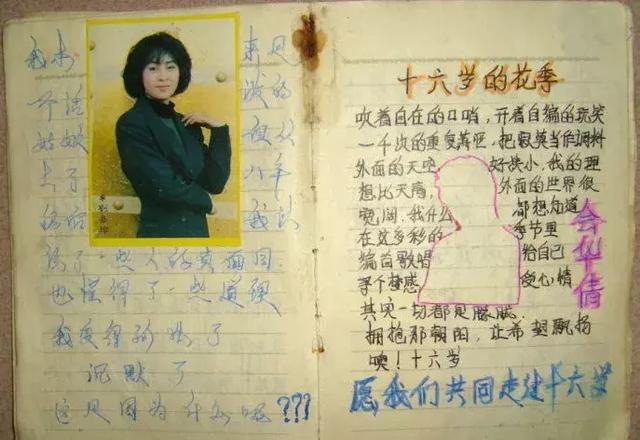 我本 来是
个活 泼的
姑娘 自从
了 八年
的后 我认
识了一些人的真面目,
也懂得了一些道理
我变得孤独了
沉默了
这是因为什么呢???
十六岁的花季
吹着自在的口哨,开着自编的玩笑
一千次的重复潇洒,把寂寞当作调料
外面的天空 好块小,我的理
想比天高, 外面的世界很
宽阔,我什么 都想知道
在这多彩的 季节里
编首歌唱 给自己
寻个梦感 爱心情
其实一切都是朦胧
拥抱那朝阳,让希望飘扬
噢!十六岁
华倩
愿我们共同走过十六岁